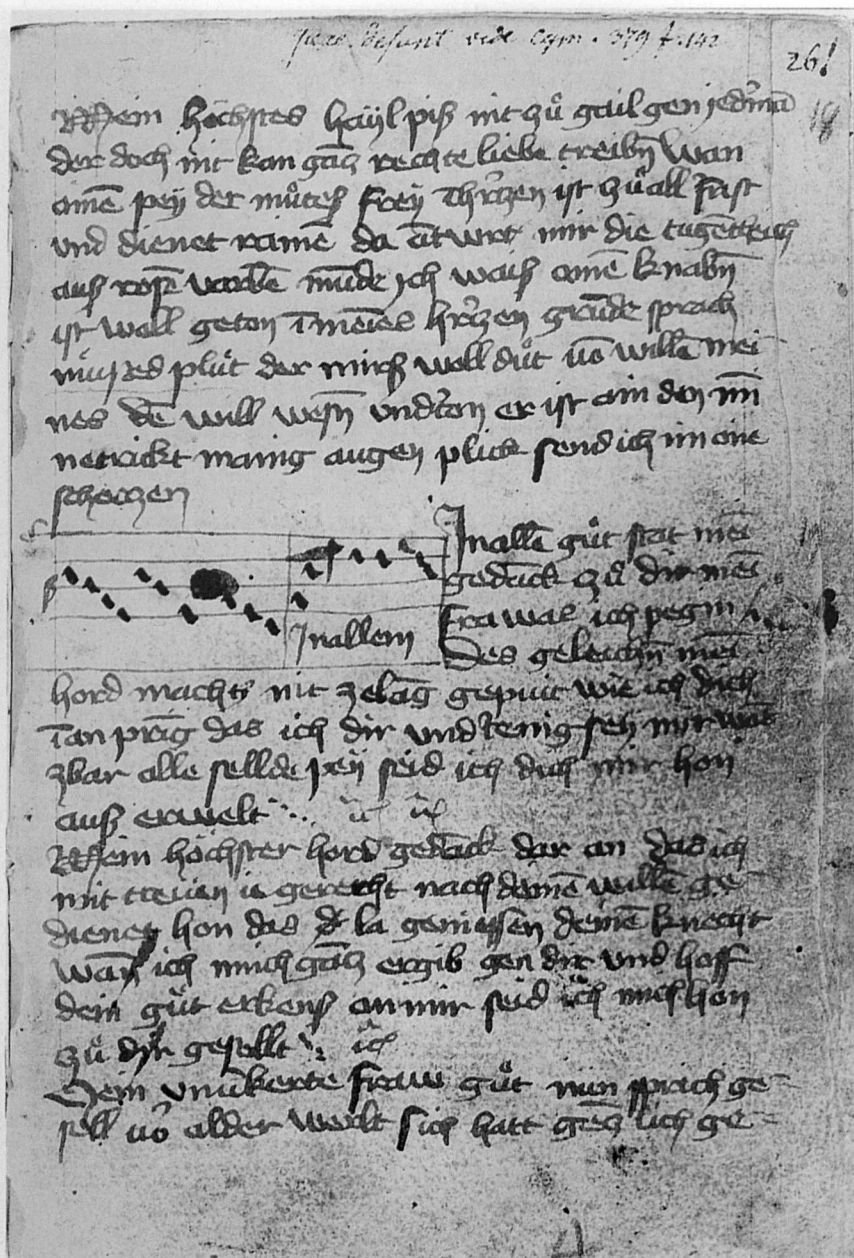 desunt vide cgm. 379 f. 142
261
18
Mein höchstes hayl piß nit zů gail gen jederman
der doch nit kan gancz rechte liebe treibn wan
ainē pey der můtes frey ist zů all fast
und dienet rainē da ātwrt mir die tugētleich
auß varbē mūde ich waiß ainē knabn
ist woll geton ī meines herczen grūde sprach
plüt der mirß woll düt vō willē mei
nes dē will wesn underton er ist ain den
netrickt maing augen plick send ich im one
scherczen
In allē gůt stät mei
gedāck zů dir mei
fraw was ich pegin
Inallem
Des geleichn mei
hord machts nit zelāg gepiut wie ich dich
ī an prāg das ich dir undtenig sey mir was
zbar alle sellde pey seid ich dich mir hon
auß erwelt
Mein höchster hord gedāck dar an das ich
mit treuen ie gerecht nach deinē willē ge
dienet hon das la geniessen deinē knecht
wān ich mich gācz ergib gen dir und hoff
dein gůt erkenß an mir seid ich mich hon
zů dir gesellt
Dein unūkerte fraw gůt nun sprich ge-
sell vō alder werlt sich hatt gēczlich ge-